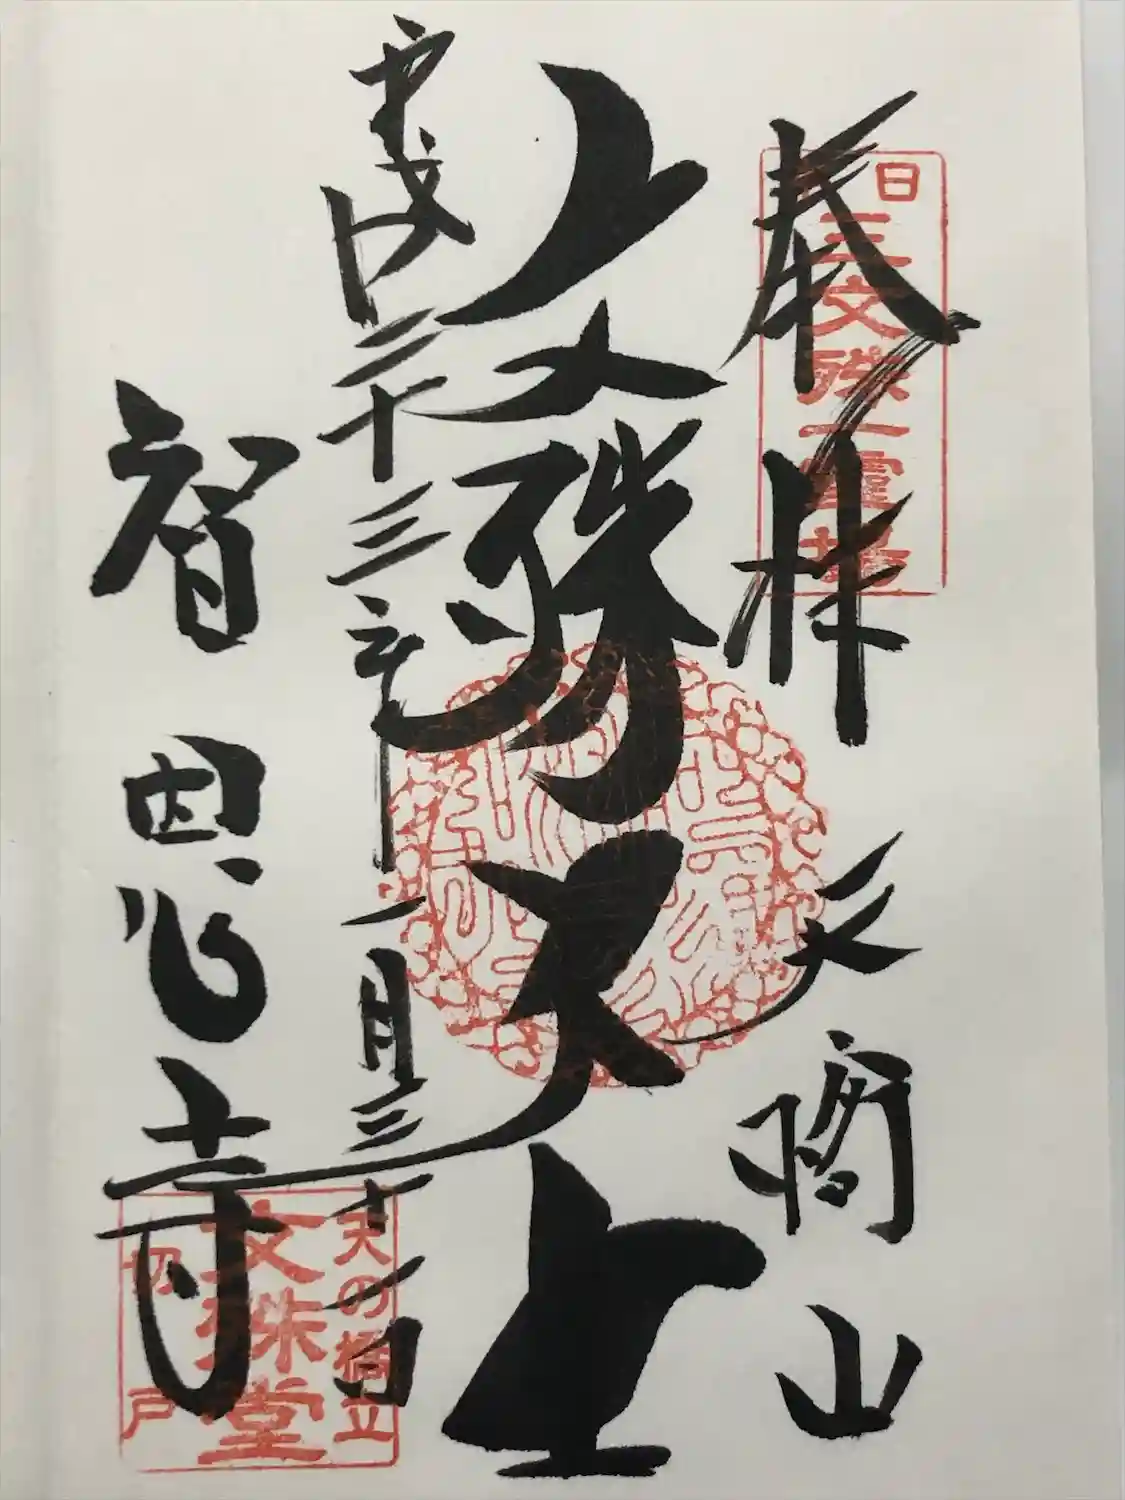 奉拝 天橋山
日三文殊一霊場
文殊大士
平成二十三年一月三十一日
智恩寺
天の橋立
文殊堂
切戸